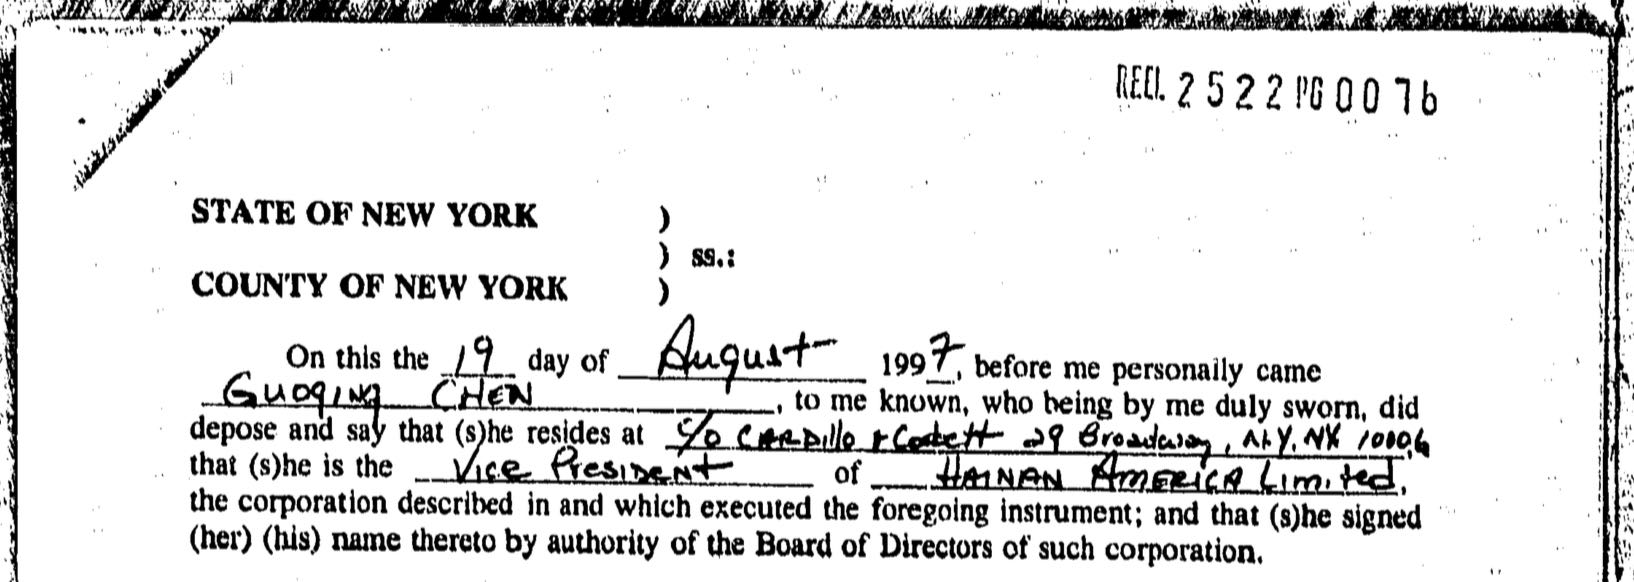 REEL 2522 PG 0076
STATE OF NEW YORK )
) ss.:
COUNTY OF NEW YORK )
On this the 19 day of August 1997, before me personally came
GUOQING CHEN, to me known, who being by me duly sworn, did
depose and say that (s)he resides at c/o CARDillo & Corbett 29 Broadway, N.Y. NY 10006
that (s)he is the Vice PresiDENT of HAINAN AMERICA Limited,
the corporation described in and which executed the foregoing instrument; and that (s)he signed
(her) (his) name thereto by authority of the Board of Directors of such corporation.